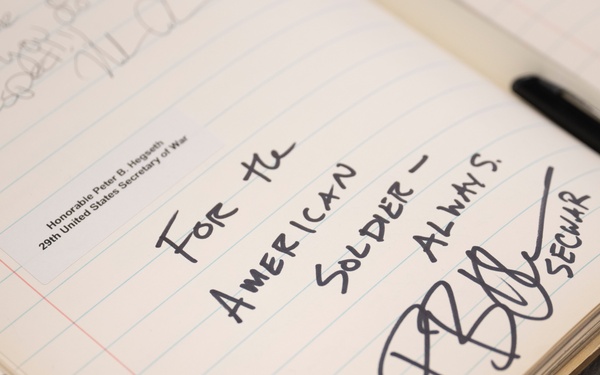 Honorable Peter B. Hegseth
29th United States Secretary of War
FOR the
AMERICAN
SOLDIER —
ALWAYS.
SECWAR